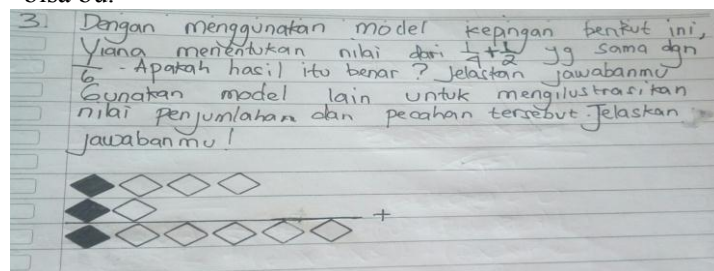 bisa bu.
3. Dengan menggunakan model kepingan berikut ini,
Yiana menentukan nilai dari 1/4 + 1/2 yg sama dgn
1/6. Apakah hasil itu benar? Jelaskan jawabanmu
Gunakan model lain untuk mengilustrasikan
nilai penjumlahan dan pecahan tersebut. Jelaskan
jawabanmu!
+